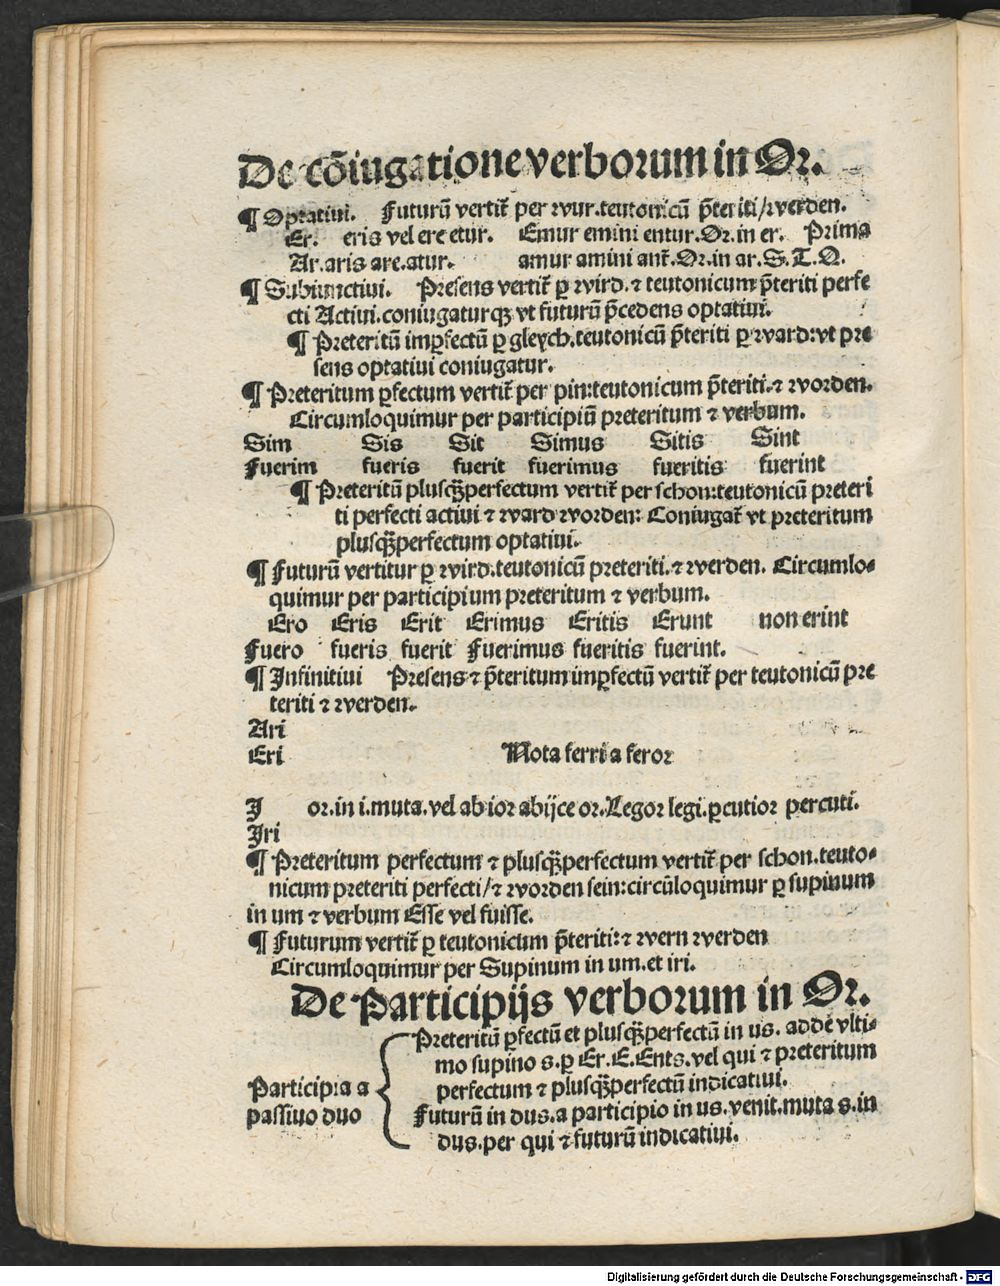 De cõiugatione verborum in Or.
¶ Optatiui. Futurũ vertit̃ per wur. teutonicũ p̃teriti/werden.
Er. eris vel ere etur. Emur emini entur. Or. in er. Prima
Ar. aris are. atur. amur amini ant̃. Or. in ar. S. T. Q.
¶ Subiunctiui. Presens vertit̃ ꝑ wird. ⁊ teutonicum p̃teriti perfe
cti Actiui. coniugaturqꝫ vt futurũ p̃cedens optatiui.
¶ Preteritũ imꝑfectũ ꝑ gleych. teutonicũ p̃teriti ꝑ ward: vt pre
sens optatiui coniugatur.
¶ Preteritum ꝑfectum vertit̃ per pin: teutonicum p̃teriti. ⁊ worden.
Circumloquimur per participiũ preteritum ⁊ verbum.
Sim Sis Sit Simus Sitis Sint
Fuerim fueris fuerit fuerimus fueritis fuerint
¶ Preteritũ plusqꝫperfectum vertit̃ per schon: teutonicũ preteri
ti perfecti actiui ⁊ ward worden: Coniugat̃ vt preteritum
plusqꝫperfectum optatiui.
¶ Futurũ vertitur ꝑ wird. teutonicũ preteriti. ⁊ werden. Circumlo-
quimur per participium preteritum ⁊ verbum.
Ero Eris Erit Erimus Eritis Erunt non erint
Fuero fueris fuerit Fuerimus fueritis fuerint.
¶ Infinitiui Presens ⁊ p̃teritum imꝑfectũ vertit̃ per teutonicũ pre
teriti ⁊ werden.
Ari
Eri Nota ferri a feror
I or. in i. muta. vel ab ior abijce or. Legor legi. ꝑcutior percuti.
Iri
¶ Preteritum perfectum ⁊ plusqꝫperfectum vertit̃ per schon. teuto-
nicum preteriti perfecti/⁊ worden sein: circũloquimur ꝑ supinum
in um ⁊ verbum Esse vel fuisse.
¶ Futurum vertit̃ ꝑ teutonicum p̃teriti: ⁊ wern werden
Circumloquimur per Supinum in um. et iri.
De Participijs verborum in Or.
Participia a
passiuo duo
Preteritũ ꝑfectũ et plusqꝫperfectũ in us. adde vlti-
mo supino s. ꝑ Er. E. Ents. vel qui ⁊ preteritum
perfectum ⁊ plusqꝫperfectũ indicatiui.
Futurũ in dus. a participio in us. venit. muta s. in
dus. per qui ⁊ futurũ indicatiui.
Digitalisierung gefördert durch die Deutsche Forschungsgemeinschaft - DFG